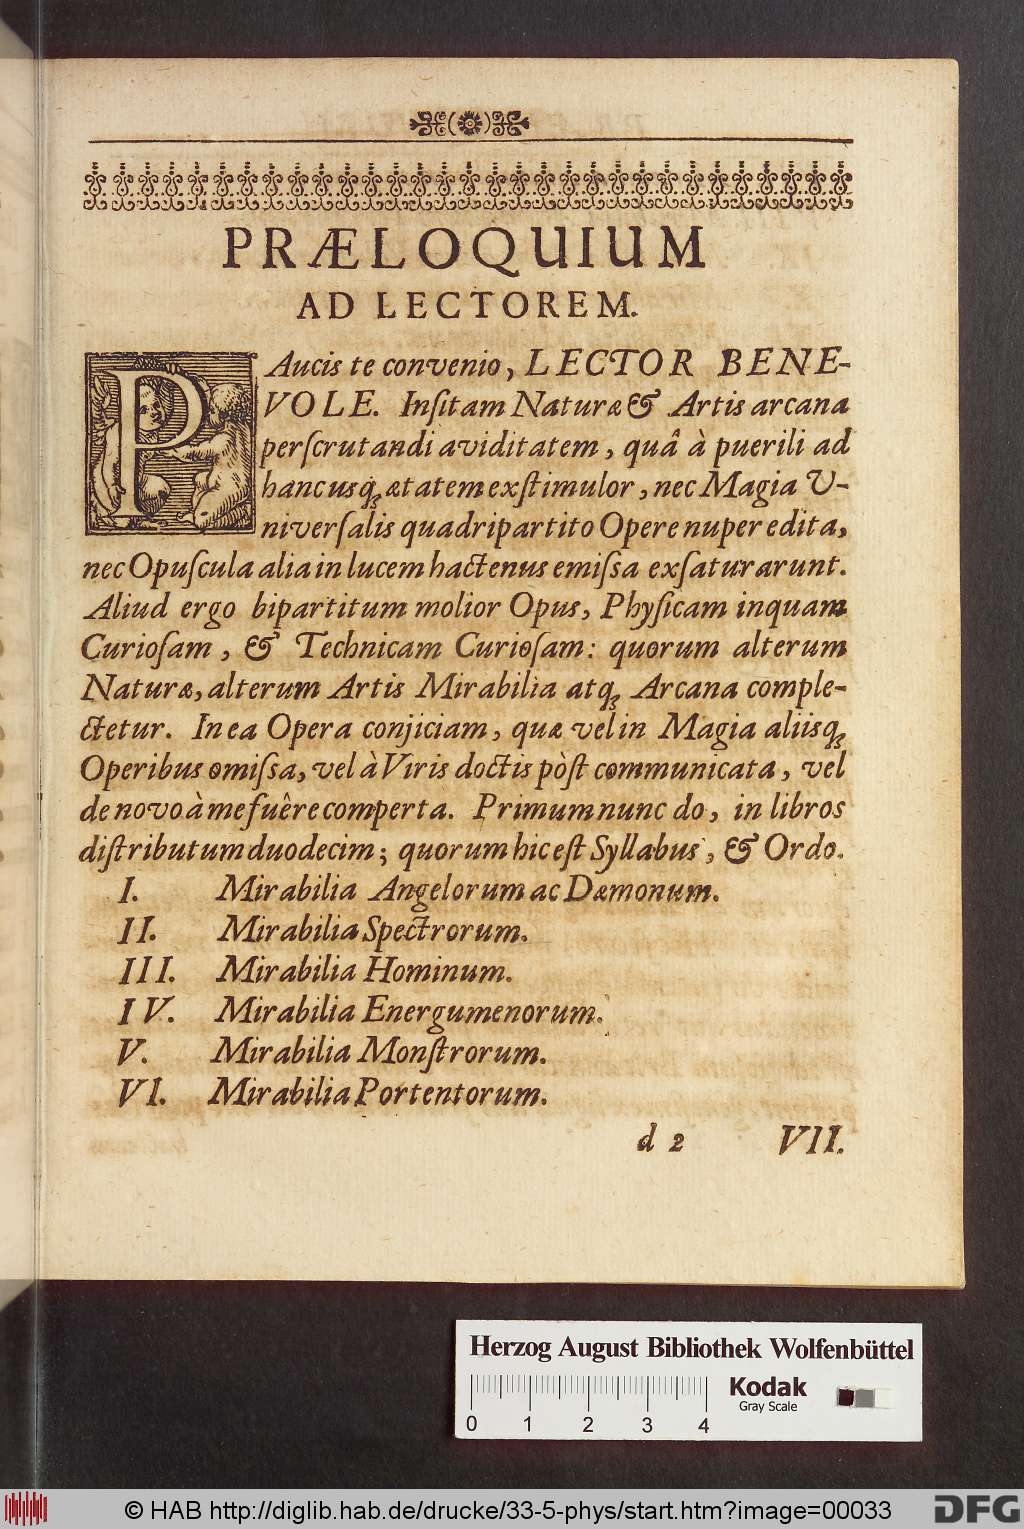 PRÆLOQUIUM
AD LECTOREM.
PAucis te convenio, LECTOR BENE-
VOLE. Inſitam Naturæ & Artis arcana
perſcrutandi aviditatem, quâ à puerili ad
hancusq́; ætatem exſtimulor, nec Magia U-
niverſalis quadripartito Opere nuper edita,
nec Opuſcula alia in lucem hactenus emiſſa exſaturarunt.
Aliud ergo bipartitum molior Opus, Phyſicam inquam
Curioſam, & Technicam Curioſam: quorum alterum
Naturæ, alterum Artis Mirabilia atq; Arcana comple-
ctetur. In ea Opera conjiciam, quæ vel in Magia aliisq;
Operibus omiſſa, vel à Viris doctis pòſt communicata, vel
de novo à me fuêre comperta. Primum nunc do, in libros
diſtributum duodecim; quorum hic eſt Syllabus, & Ordo.
I. Mirabilia Angelorum ac Dæmonum.
II. Mirabilia Spectrorum.
III. Mirabilia Hominum.
IV. Mirabilia Energumenorum.
V. Mirabilia Monſtrorum.
VI. Mirabilia Portentorum.
d 2 VII.
Herzog August Bibliothek Wolfenbüttel
Kodak
Gray Scale
0 1 2 3 4
© HAB http://diglib.hab.de/drucke/33-5-phys/start.htm?image=00033
DFG